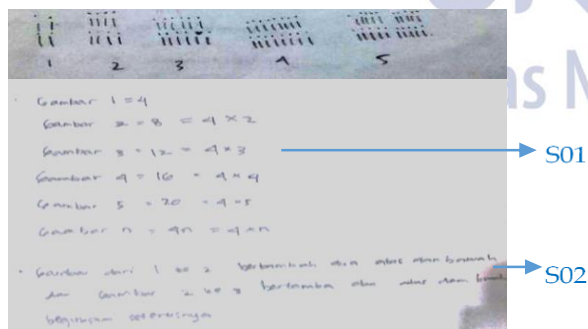 1 2 3 4 5
as M
Gambar 1 = 4
Gambar 2 = 8 = 4 x 2
Gambar 3 = 12 = 4 x 3
S01
Gambar 4 = 16 = 4 x 4
Gambar 5 = 20 = 4 x 5
Gambar n = 4n = 4 x n
Gambar dari 1 ke 2 bertambah dua atas dan bawah
S02
dan Gambar 2 ke 3 bertamba dua atas dan
begitupun seterusnya